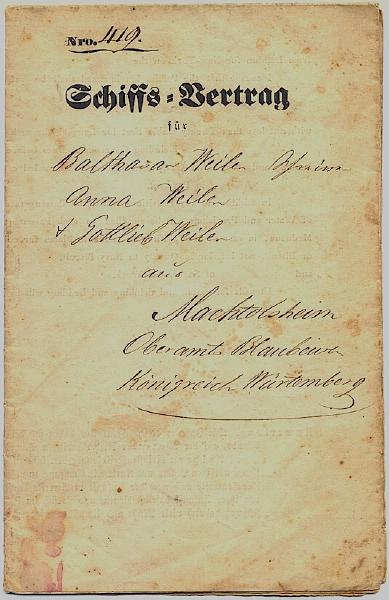 Nro. 419.
Schiffs-Vertrag
für
Balthasar Weiler
Anna Weiler
& Gottlieb Weiler
aus
Machtolsheim
Oberamt Blaubeuren
Königreich Würtemberg